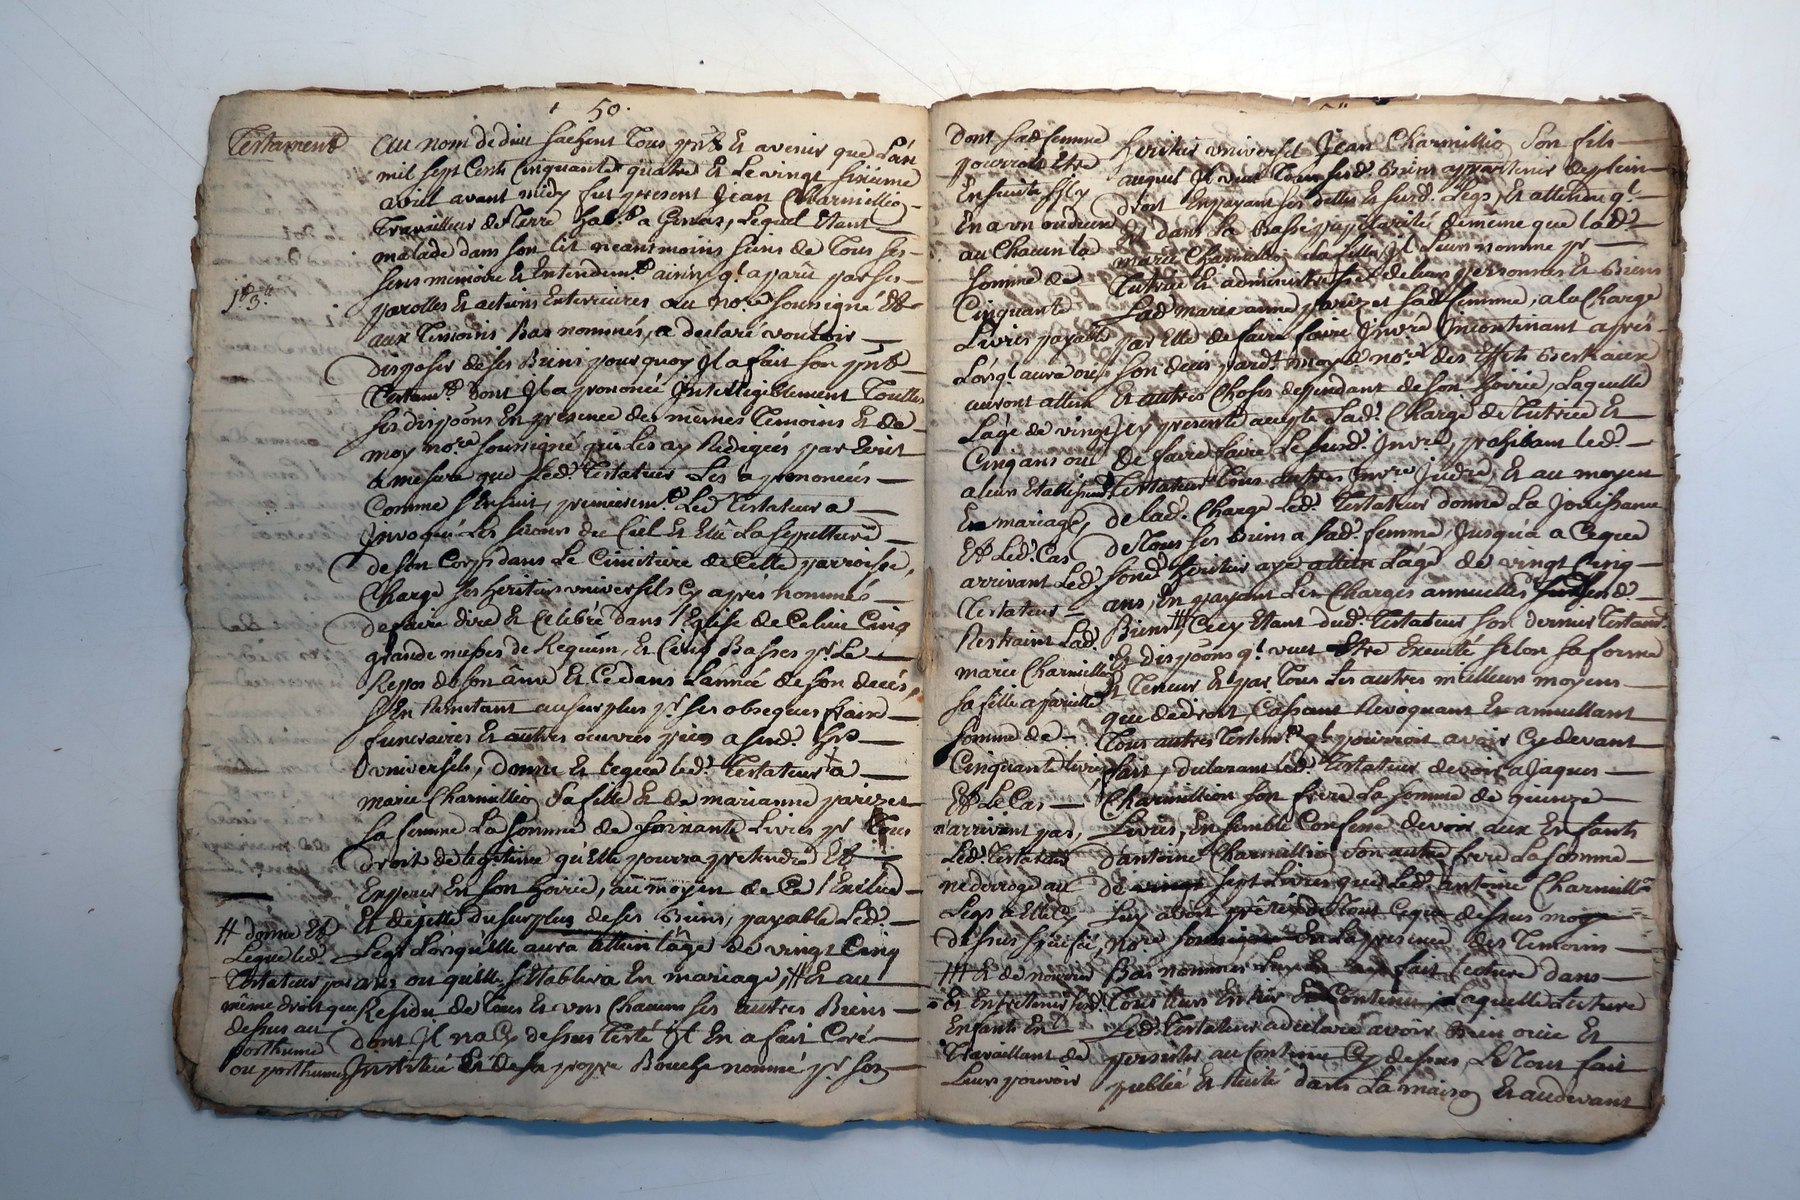 50.
Testament
Au nom de dieu sachent Tous pnt Et avenir que L'an
mil sept Cents Cinquante quatre Et Le vingt sixieme
avril avant midy fut present Jean Charmillio
Travailleur de Terre hab. a Lequel Etant
malade dans son lit neanmoins sains de Tous ses
sens memoire Et Entendem.t ainsy q.l a paru par ses
parolles Et actions Exterieures au no.re soussigné Et
aux Temoins Bas nommés, a declaré vouloir
disposer de ses Biens pourquoy Il a fait son pnt
Testam.t Dont Il a prononcé Intelligiblement Touttes
ses dispoons En presence des mêmes Temoins Et de
moy no.re soussigné qui Les ay Redegées par Ecrit
a mesure que Led. Testateur Les a prononcées
Comme s'Ensuit, premierem.t Led Testateur a
Invoqué Les secours du Ciel Et Elû La sepulture
de son Corps dans Le Cimetiere de Cette parroisse,
Charge ses heritiers universels Cy après nommés
de faire dire Et Celebré dans l'Eglise de Celieu Cinq
grande messes de Requiem, Et Cinq Basses p.r Le
Repos de son âme Et Ce dans L'année de son decés,
s'En Remetant au surplus p.r ses obseques fraix
funeraires Et autres œuvres pies a sesd. hrs
universels, donne Et legue led. Testateur a
marie Charmillio sa fille Et de marianne parizet
sa femme La somme de soixante Livres p.r Tous
droit de legitime qu'Elle pourra pretendre Et
Esperer En son hoirie, au moyen de Ce l'Exclud
Et dejette du surplus de ses Biens, payable Led.
Legs Lorsqu'Elle aura attein l'âge de vingt Cinq
ans ou qu'Elle s'Etablira En mariage, # Et au
Residu de Tous Et uns Chacuns ses autres Biens
dont Il na Cy dessus Testé Il En a fait Créé
Institué Et de sa propre Bouche nommé p.r son
# donne Et
Legue led.
Testateur par
même droit que
dessus au
posthume
ou posthumes
dont sad femme
pourroit être
Enceinte s'Il y
En a un ou deux
au Chacun la
somme de
Cinquante
Livres payable
Lorsq.l auront
attein
Lâge de vingt
Cinq ans ou
a leur Etablissem.t
En mariage,
Et Led. Cas
arrivant Led.
Testateur
Restraint Lad.
marie Charmillio
sa fille a pareille
somme de
Cinquante livres
Et Le Cas
n'arrivant pas,
Led. Testateur
ne deroge au
Legs a Elle Cy
dessus
# Et de nourrir
Et Entretenir sesd.
Enfants En
Travaillant de
Leur pouvoir
heritier universel Jean Charmillio Son fils
auquel Il veut Tous sesd. Biens appartenir de plein
droit En payant ses dettes Et susd. Legs, Et attendu q.l
Est dans La Basse pupilarité de même que lad.
marie Charmillio sa fille, Il Leur nomme p.r
Tutrice Et administratrice de leurs personnes Et Biens
Lad. marie anne parizet sad. femme, a la Charge
par Elle de faire faire Inv.re Incontinant après
son deces pard.t moyd. no.re des Effets Bestiaux
Et autres Choses dependant de son hoirie, Laquelle
Icy presente accepte Lad. Charge de Tutrice Et
de faire faire Lesusd. Inv.re, prohibant led.
Testateur Tous autres Inv.re Judre, Et au moyen
de lad. Charge Led. Testateur donne La Jouissance
de Tous ses Biens a sad. femme, Jusqu'a a Ceque
sond. heritier aye attein L'âge de vingt Cinq
ans, En payant Les Charges annuelles sur lesd.
Biens, # Cecy Etant dud. Testateur son dernier Testam.t
Et dispoons q.l veut Etre Executé selon sa forme
Et Teneur Et par Tous Les autres meilleurs moyens
que de droit, Cassant Revoquant Et annullant
Tous autres Testam.t q.l pourroit avoir Cy devant
fait, declarant Led. Testateur devoir a Jaques
Charmillion son frere La somme de quinze
Livres, En semble Confesse devoir aux Enfants
d'antoine Charmillio Son autre frere La somme
de sept Livres que Led. antoine Charmillio
Luy avoit prêtés de Tout Ceque dessus moy
no.re soussigné En La presence des Temoins
Bas nommés fait Lecture dans
Tout son Entier Et Contenu, Laquelle Lecture
Led. Testateur a declaré avoir Bien ouïe Et
persister au Contenu Cy dessus, Le Tout fait
publié Et Recité dans La maison Et au devant